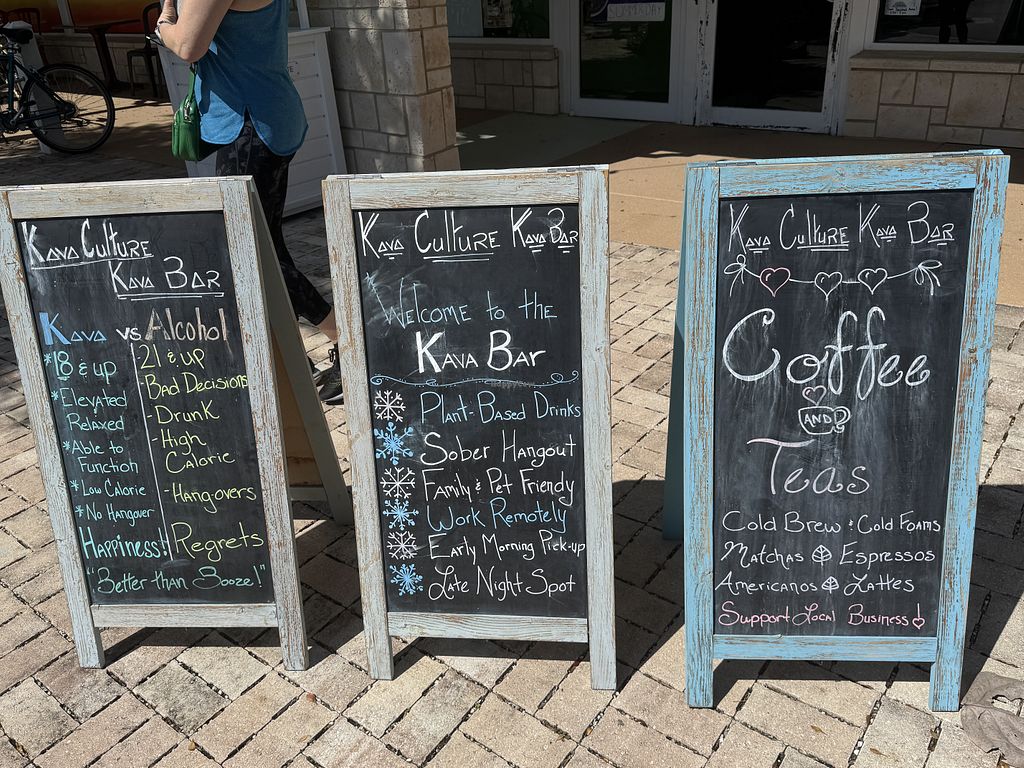 Kava Culture
Kava Bar
Kava vs Alcohol
*18 & up
*Elevated
Relaxed
*Able to
Function
*Low Calorie
*No Hangover
Happiness!
21 & up
-Bad Decisions
-Drunk
-High
Calorie
-Hang-overs
Regrets
"Better than Booze!"
Kava Culture Kava Bar
Welcome to the
Kava Bar
Plant-Based Drinks
Sober Hangout
Family & Pet Friendy
Work Remotely
Early Morning Pick-up
Late Night Spot
Kava Culture Kava Bar
Coffee
AND
Teas
Cold Brew & Cold Foams
Matchas Espressos
Americanos Lattes
Support Local Business